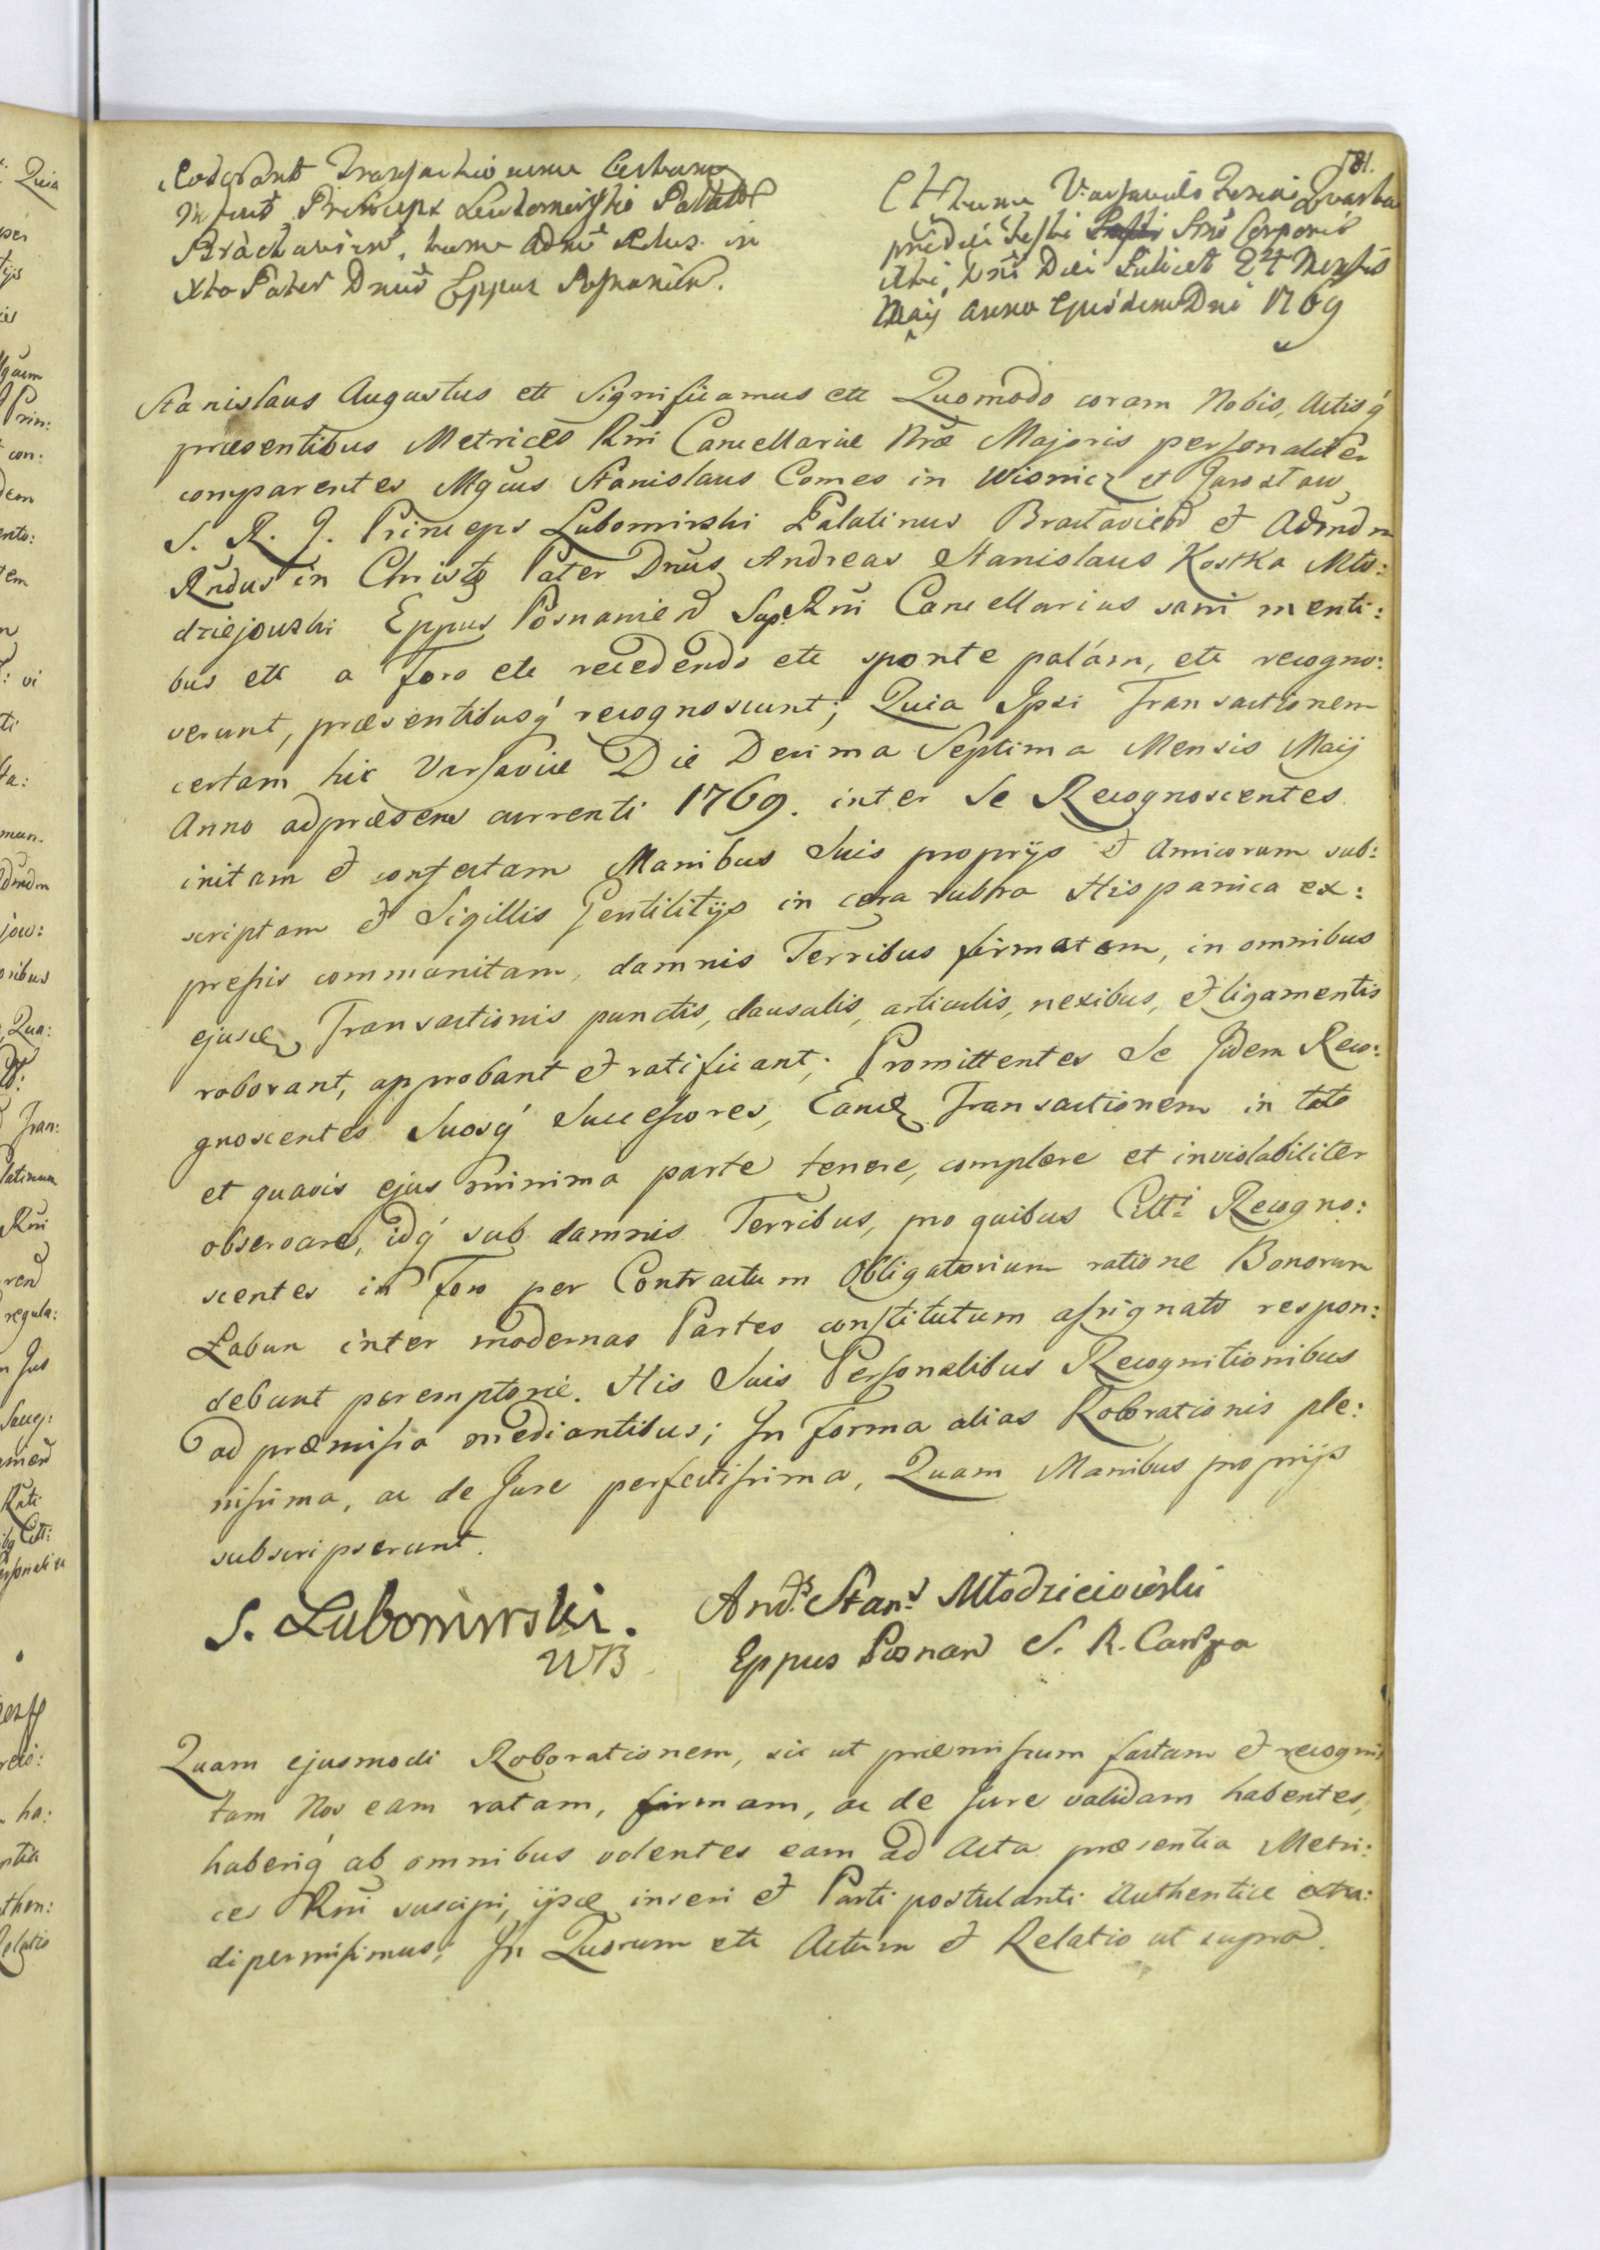 Roborant Transactionem Certam
Mgcus Princeps Lubomirski Palatus
Braclavien, tum Admd Rdus in
Xto Pater Dnus Eppus Posnanien.
781.
Actum Varsaviæ Feria Quarta
pridie festi Smi Corporis
Xti, Dni Die Scilicet 24 Mensis
Maij Anno Ejusdem Dni 1769
Stanislaus Augustus ett Significamus ett Quomodo coram Nobis, Actisq́
præsentibus Metrices Rni Cancellariæ Nræ Majoris personaliter
comparentes Mgcus Stanislaus Comes in Wisnicz et Jarosław
S. R. J. Princeps Lubomirski Palatinus Braclavien et Admdm
Rndus in Christo Pater Dnus Andreas Stanislaus Kostka Mło:
dziejowski Eppus Posnanien Sup. Rni Cancellarius sani menti:
bus ett a Foro ett recedendo ett sponte palám, ett recogno:
verunt, præsentibusq́ recognoscunt; Quia Ipsi Transactionem
certam hic Varsaviæ Die Decima Septima Mensis Maij
Anno adpræsens currenti 1769. inter Se Recognoscentes
initam et confectam Manibus Suis proprijs et Amicorum sub:
scriptam et Sigillis Gentilitijs in cera rubra Hispanica ex:
pressis communitam, damnis Terribus firmatam, in omnibus
ejusd Transactionis punctis, clausulis, articulis, nexibus, et ligamentis
roborant, approbant et ratificant; Promittentes Se Jidem Reco:
gnoscentes Suosq́ Successores, Eand Transactionem in toto
et quavis ejus minima parte tenere, complere et inviolabiliter
observare, idq́ sub damnis Terribus, pro quibus Citti Recogno:
scentes in Foro per Contractum Obligatorium ratione Bonorum
Łabun inter modernas Partes constitutum assignato respon:
debunt peremptorie. His Suis Personalibus Recognitionibus
ad præmissa mediantibus; In Forma alias Roborationis ple:
nissima, ac de Jure perfectissima, Quam Manibus proprijs
subscripserunt.
S. Lubomirski.
WB
Andrs Stans Młodzieiowski
Eppus Posnan S. R. Canrs
Quam ejusmodi Roborationem, sic ut præmissum factam et recogni
tam Nos eam ratam, firmam, ac de Jure validam habentes,
haberiq́ ab omnibus volentes eam ad Acta præsentia Metri:
ces Rni suscipi, ijsd inseri et Parti postulanti authentice extra:
di permisimus; In Quorum ett Actum et Relatio ut supra.